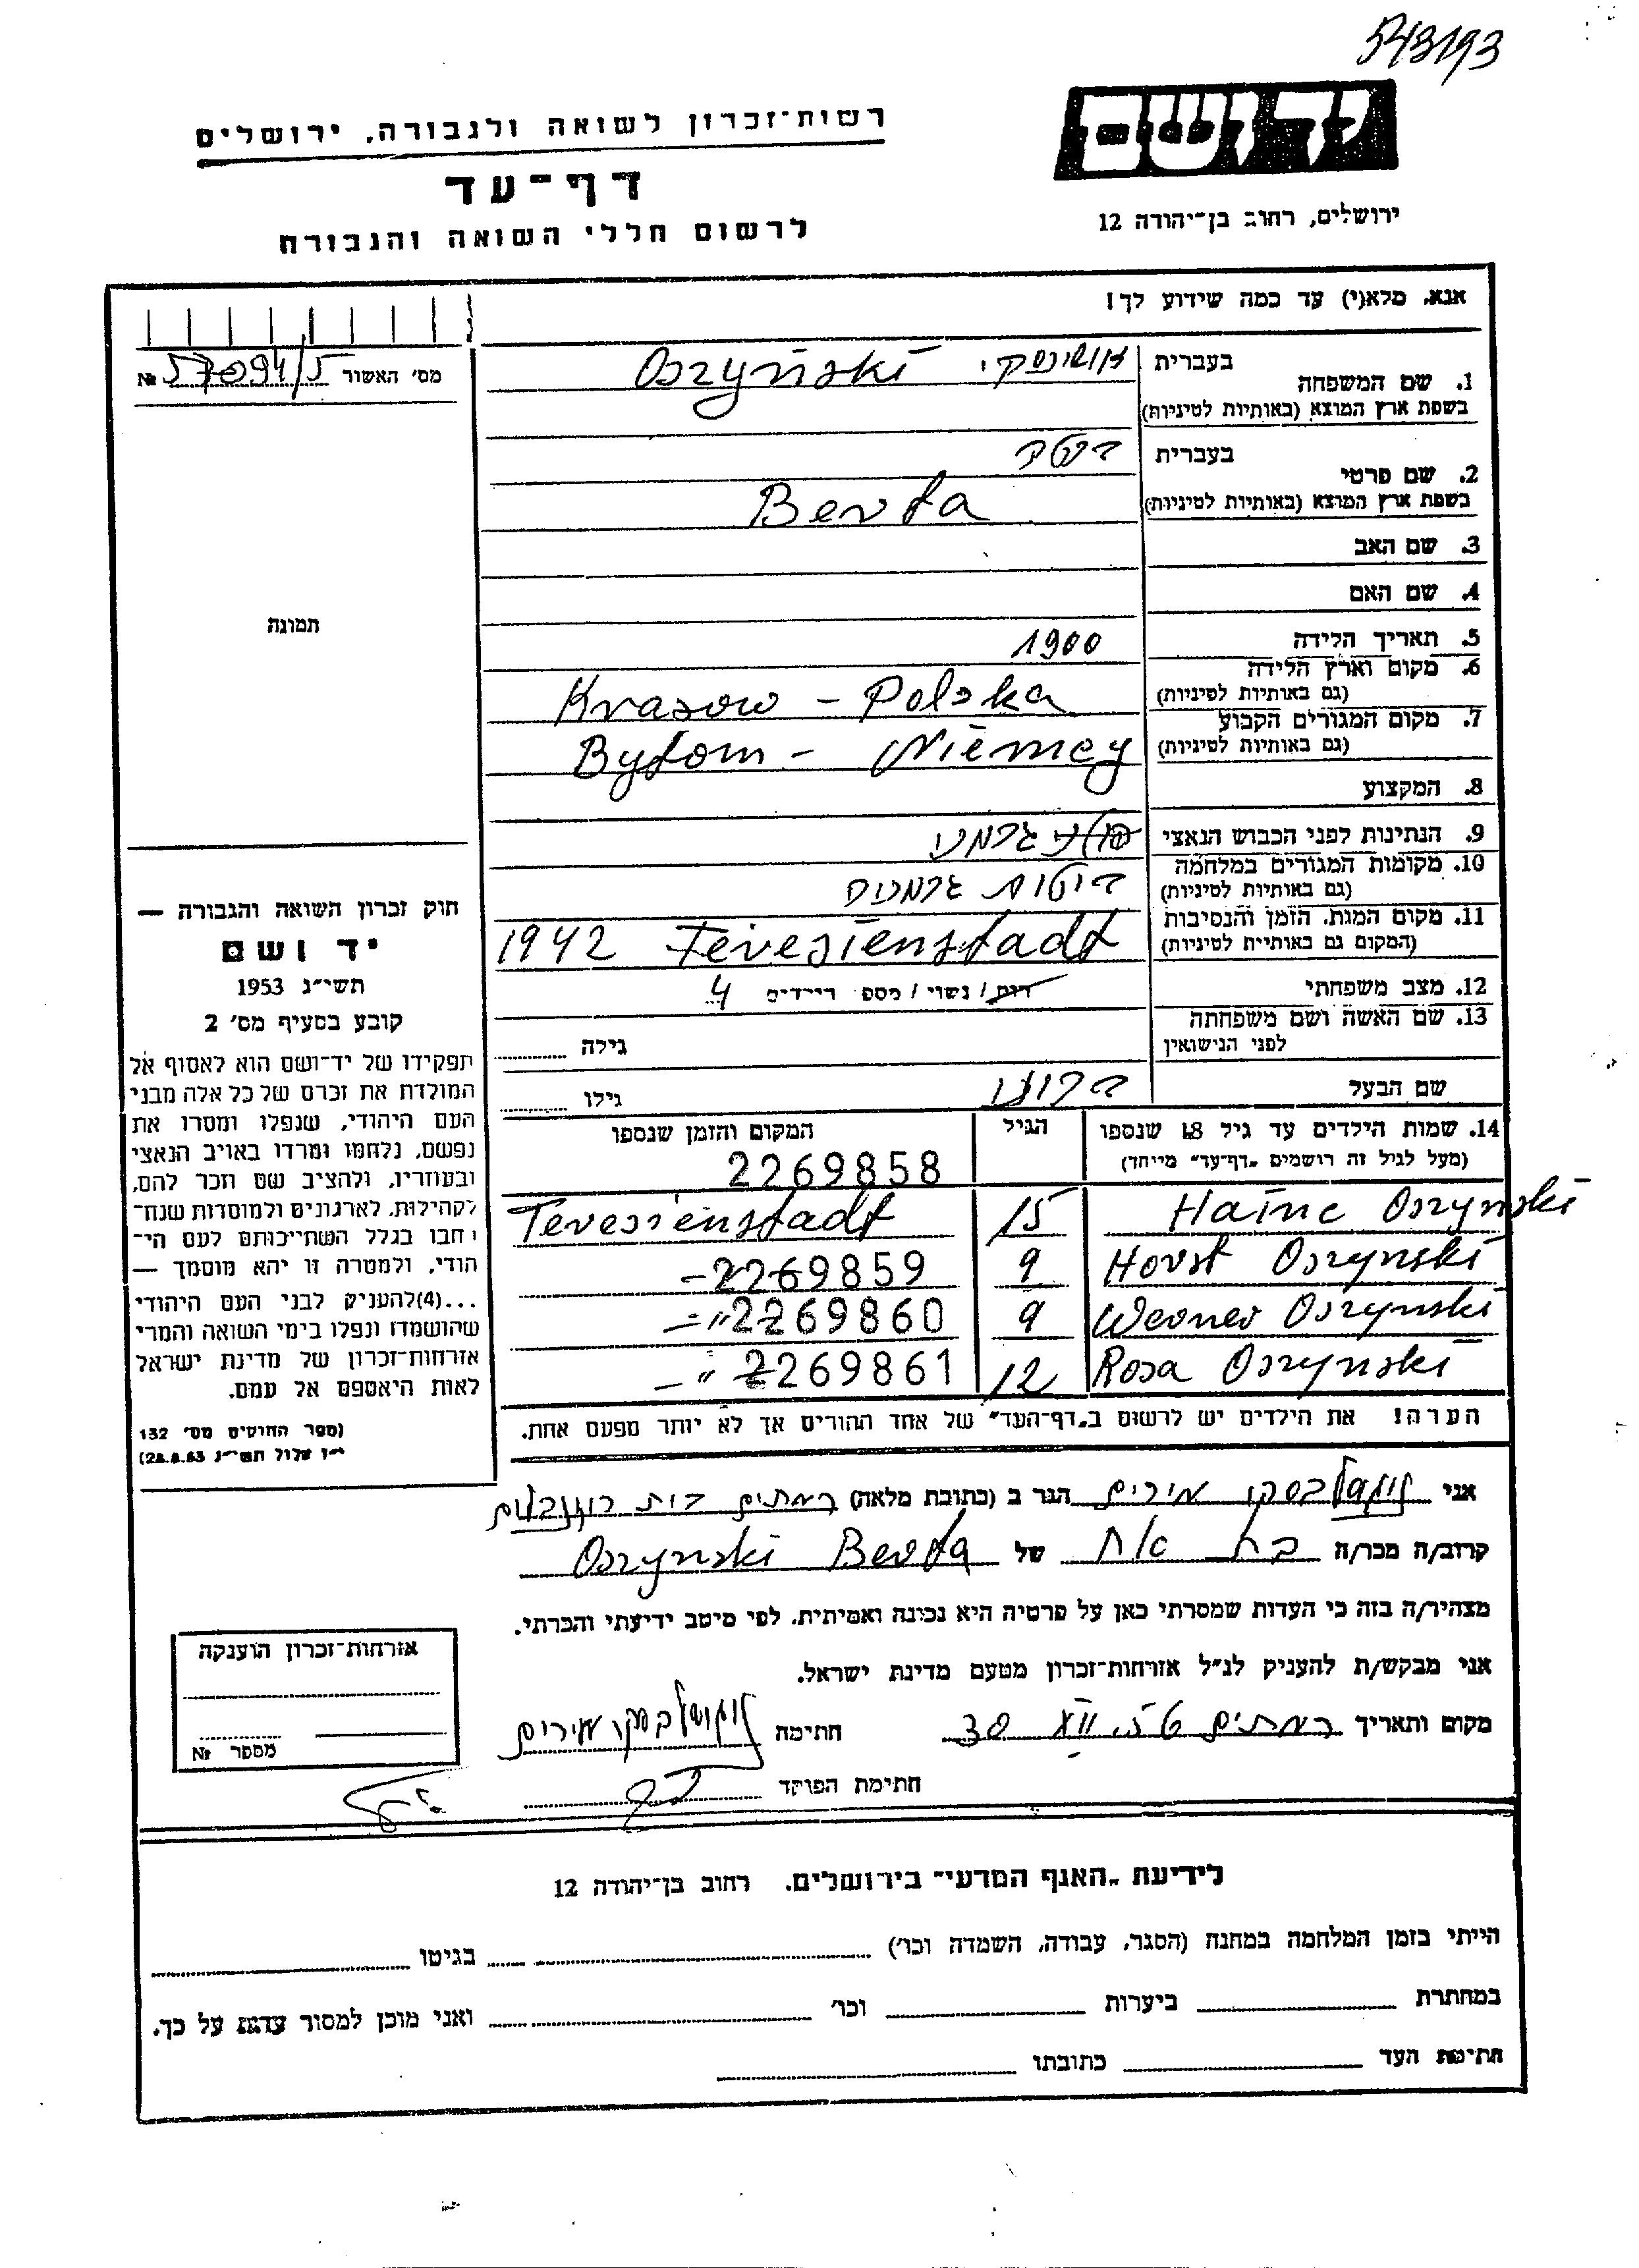 543193
יד ושם
רשות־זכרון לשואה ולגבורה, ירושלים
דף־עד
לרשום חללי השואה והגבורה
ירושלים, רחוב בן־יהודה 12
אנא, מלא(י) עד כמה שידוע לך!
מס׳ האשור 57094/5 №
תמונה
1. שם המשפחה בעברית אושינסקי
בשפת ארץ המוצא (באותיות לטיניות) Oszyński
2. שם פרטי בעברית ברטה
בשפת ארץ המוצא (באותיות לטיניות) Berta
3. שם האב
4. שם האם
5. תאריך הלידה 1900
6. מקום וארץ הלידה (גם באותיות לטיניות) Krasow - Polska
7. מקום המגורים הקבוע (גם באותיות לטיניות) Bytom - Niemcy
8. המקצוע
9. הנתינות לפני הכבוש הנאצי גרמני
10. מקומות המגורים במלחמה (גם באותיות לטיניות) ביטום גרמניה
11. מקום המות, הזמן והנסיבות (המקום גם באותיות לטיניות) Teresienstadt 1942
12. מצב משפחתי רווק / נשוי / מספר הילדים 4
13. שם האשה ושם משפחתה לפני הנישואין גילה
שם הבעל גילו
14. שמות הילדים עד גיל 18 שנספו הגיל המקום והזמן שנספו
(מעל לגיל זה רושמים „דף־עד״ מייחד) 2269858
Haine Oszynski 15 Teresienstadt
Horst Oszynski 9 2269859
Werner Oszynski 9 -"- 2269860
Rosa Oszynski 12 -"- 2269861
הערה! את הילדים יש לרשום ב„דף־העד״ של אחד ההורים אך לא יותר מפעם אחת.
חוק זכרון השואה והגבורה —
יד ושם
תשי״ג 1953
קובע בסעיף מס׳ 2
תפקידו של יד־ושם הוא לאסוף אל
המולדת את זכרם של כל אלה מבני
העם היהודי, שנפלו ומסרו את
נפשם, נלחמו ומרדו באויב הנאצי
ובעוזריו, ולהציב שם וזכר להם,
לקהילות, לארגונים ולמוסדות שנח־
רבו בגלל השתייכותם לעם הי־
הודי, ולמטרה זו יהא מוסמך —
...(4) להעניק לבני העם היהודי
שהושמדו ונפלו בימי השואה והמרי
אזרחות־זכרון של מדינת ישראל
לאות היאספם אל עמם.
(ספר החוקים מס׳ 132
י״ז אלול תשי״ג 28.8.53)
אני מירים הגר ב (כתובת מלאה) רמתים בית
קרוב/ה מכר/ה בת אח של Oszynski Berta
מצהיר/ה בזה כי העדות שמסרתי כאן על פרטיה היא נכונה ואמיתית, לפי מיטב ידיעתי והכרתי.
אני מבקש/ת להעניק לנ״ל אזרחות־זכרון מטעם מדינת ישראל.
מקום ותאריך רמתים חתימה מירים
חתימת הפוקד
אזרחות־זכרון הוענקה
מספר №
לידיעת „האגף המדעי״ בירושלים, רחוב בן־יהודה 12
הייתי בזמן המלחמה במחנה (הסגר, עבודה, השמדה וכו׳) בגיטו
במחתרת ביערות וכו׳ ואני מוכן למסור עדות על כך.
חתימת העד כתובתו